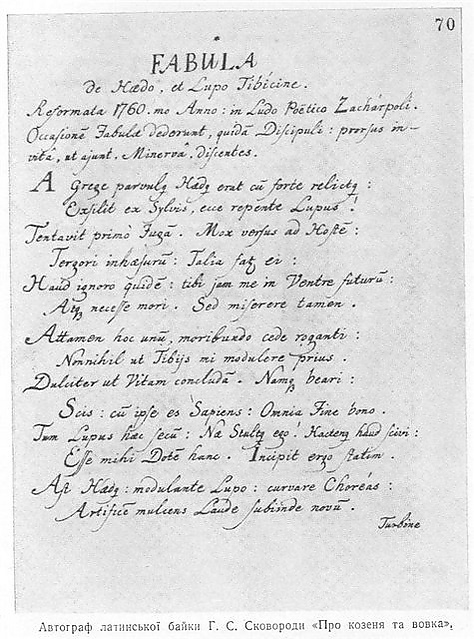 70
FABULA
de Hædo, et Lupo Tibicine.
Reformata 1760.mo Anno: in Ludo Poëtico Zacharpoli.
Occasionē Fabulæ dederunt, quidā Discipuli: prorsus in-
vitâ, ut ajunt, Minervâ discentes.
A Grege parvulq Hædq erat cū forte relictq:
Exsilit ex Sylvis, ecce repente Lupus!
Tentavit primò Fugā. Mox versus ad Hostē:
Tergori inhæsurū: Talia fatq ei:
Haud ignoro quidē: tibi jam me in Ventre futurū:
Atq necesse mori. Sed miserere tamen.
Attamen hoc unū, moribundo cede roganti:
Nonnihil ut Tibijs mi modulere priùs.
Dulciter ut Vitam concludā. Namq beari:
Scis: cū ipse es Sapiens: Omnia Fine bono.
Tum Lupus hæc secū: Næ Stultq ego! Hactenq haud scivi:
Esse mihi Dotē hanc. Incipit ergo statim.
Ast Hædq: modulante Lupo: curvare Choréas:
Artificē mulcens Laude subinde novū.
Turbine
Автограф латинської байки Г. С. Сковороди «Про козеня та вовка»,